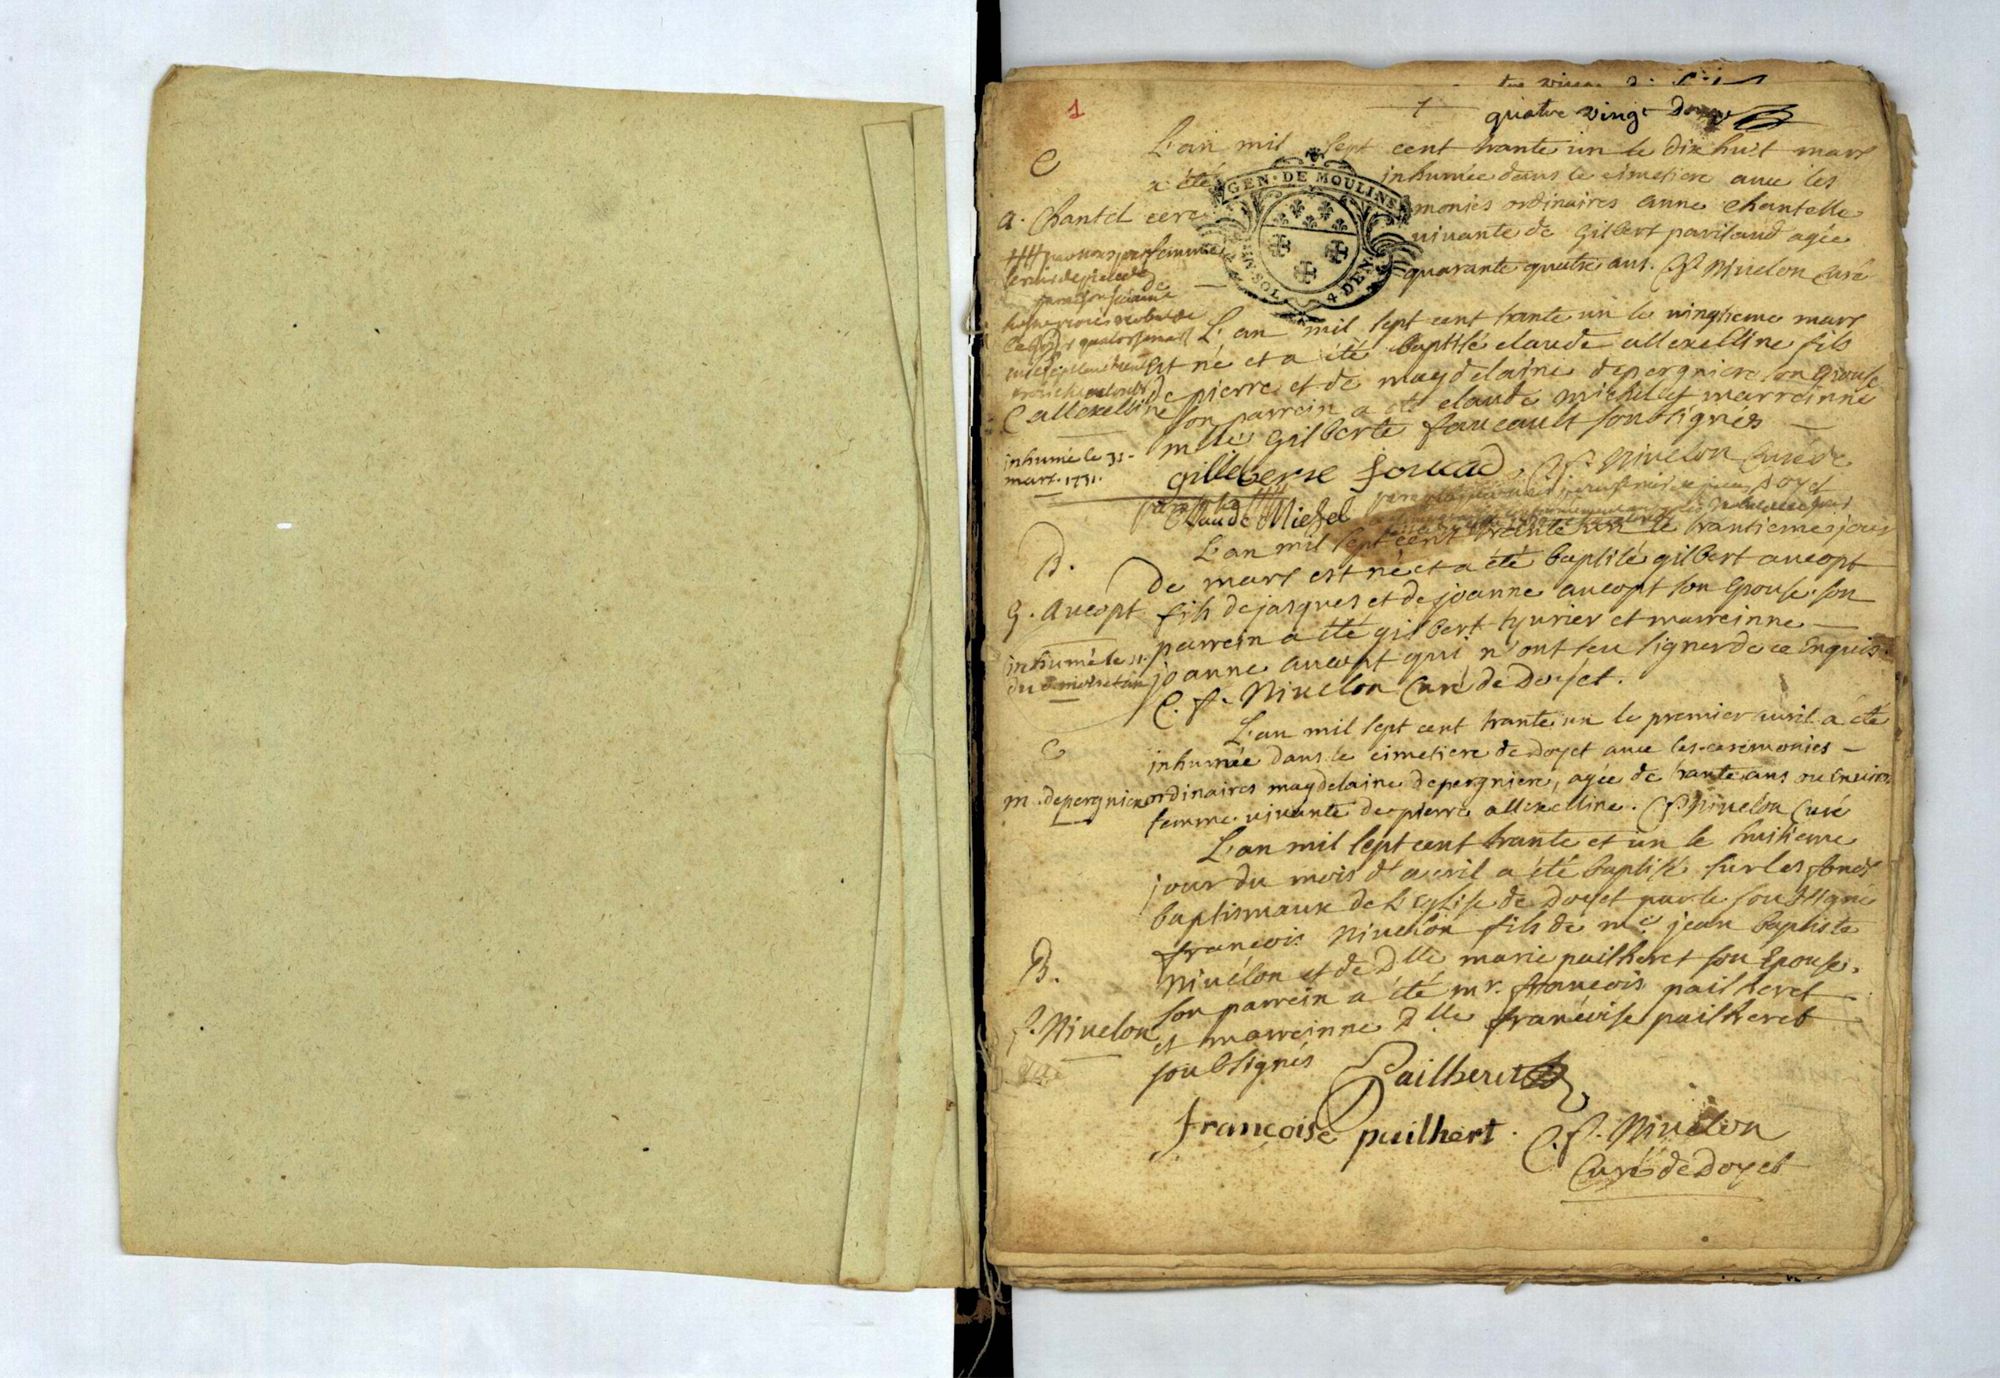 1
1
quatre vingt douze
L'an mil sept cent trante un le dix huit mars
a été inhumée dans le cimetiere avec les
GEN · DE MOULINS
SOL
4 DEN
a. Chantel
ceremonies ordinaires anne chantelle
vivante de Gilbert parilaud agée
quarante quatre ans. C. f. Nivelon Curé
L'an mil sept cent trante un le vingtieme mars
est né et a été baptisé claude allexelline fils
de pierre et de magdelaine depergniere son epouse
C allexelline
son parrein a été claude michel et marreinne
mlle Gilberte foucault soubsignés
inhumé le 31.
mars. 1731.
gilleberte foucaud C. f. Nivelon Curé de
Doyet
Claude Michel
L'an mil sept cent trante un le trantieme jour
B.
de mars est né et a été baptisé gilbert aucopt
g. Aucopt
fils de jasques et de joanne aucopt son Epouse. son
parrein a été gilbert thurier et marreinne
inhumé le 11.
joanne aucopt qui n'ont seu signer de ce Enquis.
C. f. Nivelon Curé de Doyet.
L'an mil sept cent trante un le premier avril a été
inhumée dans le cimetiere de Doyet avec les ceremonies
m. depergniere
ordinaires magdelaine depergniere, agée de trante ans ou Environ
femme vivante de pierre allexelline. C. f. Nivelon Curé
L'an mil sept cent trante et un le huitieme
jour du mois d'avril a été baptisé sur les fonds
baptismaux de l'Eglise de Doyet par le soubsigné
francois Nivelon fils de me. jean baptiste
B.
Nivelon et de Dlle marie pailheret son Epouse.
son parrein a été mr. francois pailheret
f. Nivelon
et marreinne Dlle francoise pailheret
soubsignés
Pailheret
francoise pailhert. C. f. Nivelon
Curé de Doyet